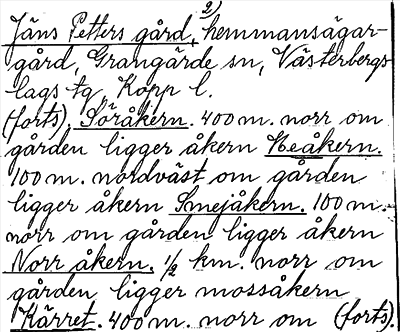 2)
Jäns Petters gård, hemmansägar-
gård, Grangärde sn, Västerbergs
lags tg, Kopp l.
(forts). Söråkern. 400 m. norr om
gården ligger åkern Heåkern.
100 m. nordväst om gården
ligger åkern Smejåkern. 100 m.
norr om gården ligger åkern
Norr åkern. ½ km. norr om
gården ligger mossåkern
Kärret. 400 m. norr om (forts).